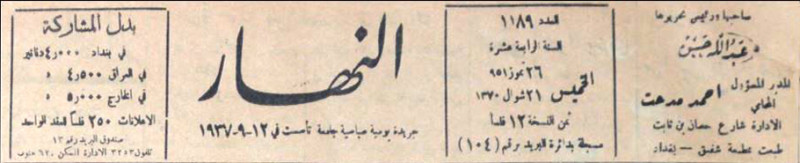 صاحبها ورئيس تحريرها
عبدالله حسن
المدير المسؤول
المحامي احمد مدحت
الادارة شارع حسان بن ثابت
طبعت بمطبعة شفيق - بغداد
العدد ١١٨٩
السنة الرابعة عشرة
الخميس
٢٦ تموز ٩٥١
٢١ شوال ١٣٧٠
ثمن النسخة ١٢ فلساً
مسجلة بدائرة البريد برقم (١٠٤)
النهار
جريدة يومية سياسية جامعة تأسست في ١٢-٩-١٩٣٧
بدل المشاركة
في بغداد ٤٫٠٠٠ دنانير
في العراق ٤٫٥٠٠ »
في الخارج ٥٫٠٠٠ »
الاعلانات ٢٥٠ فلساً للعقد الواحد
صندوق البريد رقم ١٣
تلفون ٣٢٥٣ الادارة السكن